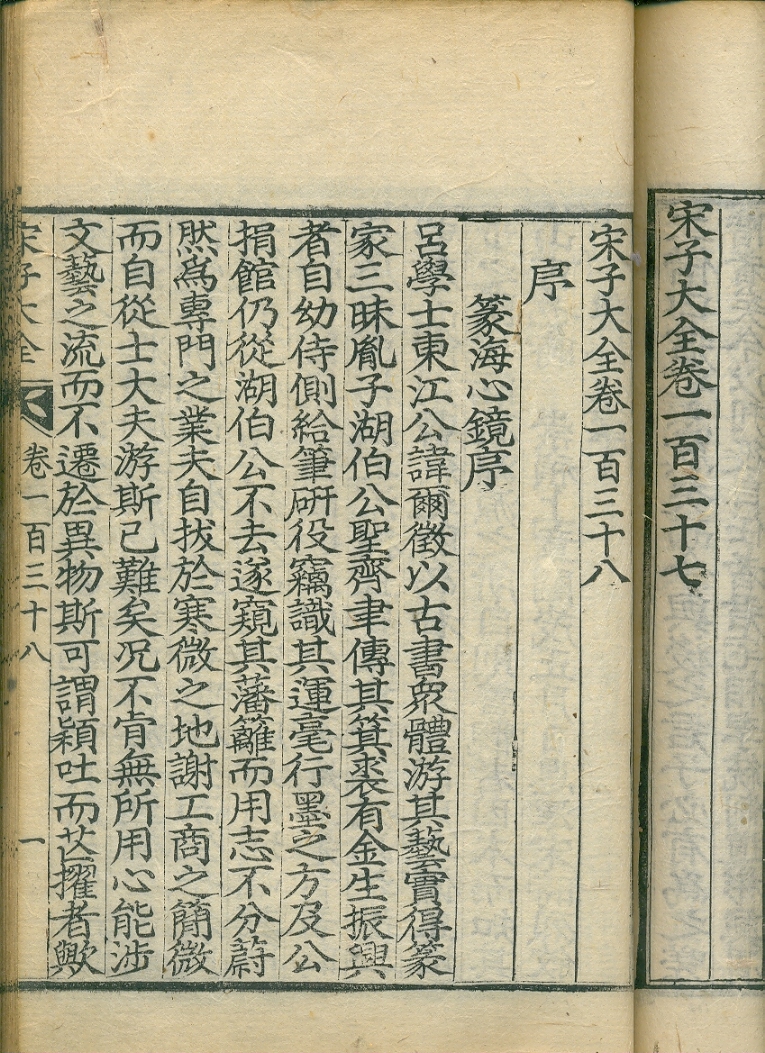 宋子大全卷一百三十七
宋子大全卷一百三十八
序
篆海心鏡序
呂學士東江公諱爾徵以古書衆體游其藝實得篆
家三昧胤子湖伯公聖齊聿傳其箕裘有金生振興
者自幼侍側給筆硏役竊識其運毫行墨之方及公
捐館仍從湖伯公不去遂窺其藩籬而用志不分蔚
然爲專門之業夫自拔於寒微之地謝工商之簡微
而自從士大夫游斯已難矣况不肯無所用心能涉
文藝之流而不遷於異物斯可謂穎吐而芒擢者歟
宋子大全
卷一百三十八
一